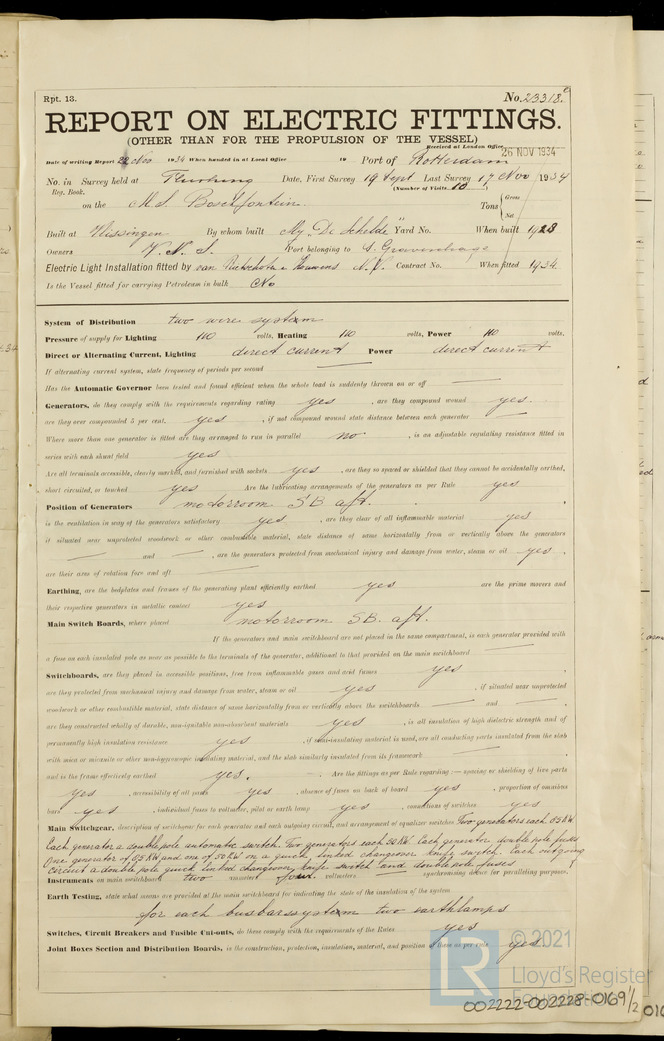 Rpt. 13. No. 23318.
REPORT ON ELECTRIC FITTINGS.
(OTHER THAN FOR THE PROPULSION OF THE VESSEL)
Received at London Office 26 NOV 1934
Date of writing Report 22 Nov 1934 When handed in at Local Office 19 Port of Rotterdam
No. in Survey held at Flushing Date, First Survey 19 Sept Last Survey 17 Nov 1934
Reg. Book. (Number of Visits 10)
on the M.S. Boschfontein Tons Gross
Net
Built at Vlissingen By whom built My. "De Schelde" Yard No. When built 1928
Owners V. N. S. Port belonging to s. Gravenhage
Electric Light Installation fitted by van Rietschoten & Houwens N.V. Contract No. When fitted 1934
Is the Vessel fitted for carrying Petroleum in bulk No
System of Distribution two wire system
Pressure of supply for Lighting 110 volts, Heating 110 volts, Power 110 volts.
Direct or Alternating Current, Lighting direct current Power direct current
If alternating current system, state frequency of periods per second
Has the Automatic Governor been tested and found efficient when the whole load is suddenly thrown on or off
Generators, do they comply with the requirements regarding rating yes, are they compound wound yes.
are they over compounded 5 per cent. yes, if not compound wound state distance between each generator
Where more than one generator is fitted are they arranged to run in parallel no, is an adjustable regulating resistance fitted in
series with each shunt field yes
Are all terminals accessible, clearly marked, and furnished with sockets yes, are they so spaced or shielded that they cannot be accidentally earthed,
short circuited, or touched yes Are the lubricating arrangements of the generators as per Rule yes
Position of Generators motorroom SB aft.
is the ventilation in way of the generators satisfactory yes, are they clear of all inflammable material yes
if situated near unprotected woodwork or other combustible material, state distance of same horizontally from or vertically above the generators
and , are the generators protected from mechanical injury and damage from water, steam or oil yes,
are their axes of rotation fore and aft
Earthing, are the bedplates and frames of the generating plant efficiently earthed yes are the prime movers and
their respective generators in metallic contact yes
Main Switch Boards, where placed motorroom SB. aft.
If the generators and main switchboard are not placed in the same compartment, is each generator provided with
a fuse on each insulated pole as near as possible to the terminals of the generator, additional to that provided on the main switchboard
Switchboards, are they placed in accessible positions, free from inflammable gases and acid fumes yes,
are they protected from mechanical injury and damage from water, steam or oil yes, if situated near unprotected
woodwork or other combustible material, state distance of same horizontally from or vertically above the switchboards and ,
are they constructed wholly of durable, non-ignitable non-absorbent materials yes, is all insulation of high dielectric strength and of
permanently high insulation resistance yes, if non-insulating material is used, are all conducting parts insulated from the slab
with mica or micanite or other non-hygroscopic insulating material, and the slab similarly insulated from its framework
and is the frame effectively earthed yes. Are the fittings as per Rule regarding:— spacing or shielding of live parts
yes, accessibility of all parts yes, absence of fuses on back of board yes, proportion of omnibus
bars yes, individual fuses to voltmeter, pilot or earth lamp yes, connections of switches yes
Main Switchgear, description of switchgear for each generator and each outgoing circuit, and arrangement of equaliser switches Two generators each 65 KW
Each generator a double pole automatic switch. Two generators each 50 KW Each generator double pole fuses
One generator of 65 KW and one of 50 KW on a quick linked changeover knife switch. Each outgoing
circuit a double pole quick linked changeover knife switch and double pole fuses
Instruments on main switchboard two ammeters four voltmeters synchronising device for paralleling purposes.
Earth Testing, state what means are provided at the main switchboard for indicating the state of the insulation of the system
for each busbarsystem two earthlamps
Switches, Circuit Breakers and Fusible Cut-outs, do these comply with the requirements of the Rules yes
Joint Boxes Section and Distribution Boards, is the construction, protection, insulation, material, and position of these as per rule yes
© 2021
LR
Lloyd's Register
Foundation
002222-002228-0169 1/2